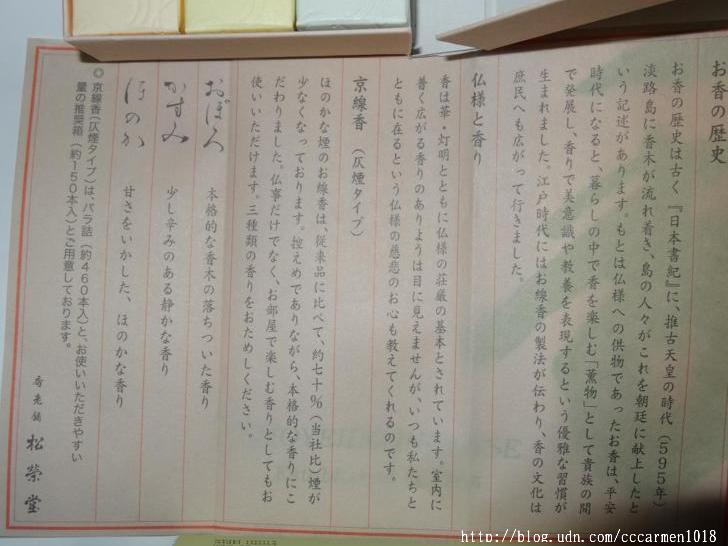 お香の歴史
お香の歴史は古く『日本書紀』に、推古天皇の時代（595年）
淡路島に香木が流れ着き、島の人々がこれを朝廷に献上したと
いう記述があります。もとは仏様への供物であったお香は、平安
時代になると、暮らしの中で香を楽しむ「薫物」として貴族の間
で発展し、香りで美意識や教養を表現するという優雅な習慣が
生まれました。江戸時代にはお線香の製法が伝わり、香の文化は
庶民へも広がって行きました。
仏様と香り
香は華・灯明とともに仏様の荘厳の基本とされています。室内に
普く広がる香りのありようは目に見えませんが、いつも私たちと
ともに在るという仏様の慈悲のお心も教えてくれるのです。
京線香（仄煙タイプ）
ほのかな煙のお線香は、従来品に比べて、約七十％（当社比）煙が
少なくなっております。控えめでありながら、本格的な香りにこ
だわりました。仏事だけでなく、お部屋で楽しむ香りとしてもお
使いいただけます。三種類の香りをおためしください。
おぼろ 本格的な香木の落ちついた香り
かすみ 少し辛みのある静かな香り
ほのか 甘さをいかした、ほのかな香り
◎京線香（仄煙タイプ）は、バラ詰（約460本入）と、お使いいただきやすい
量の推奨箱（約150本入）とご用意しております。
香老舗 松榮堂
http://blog.udn.com/cccarmen1018